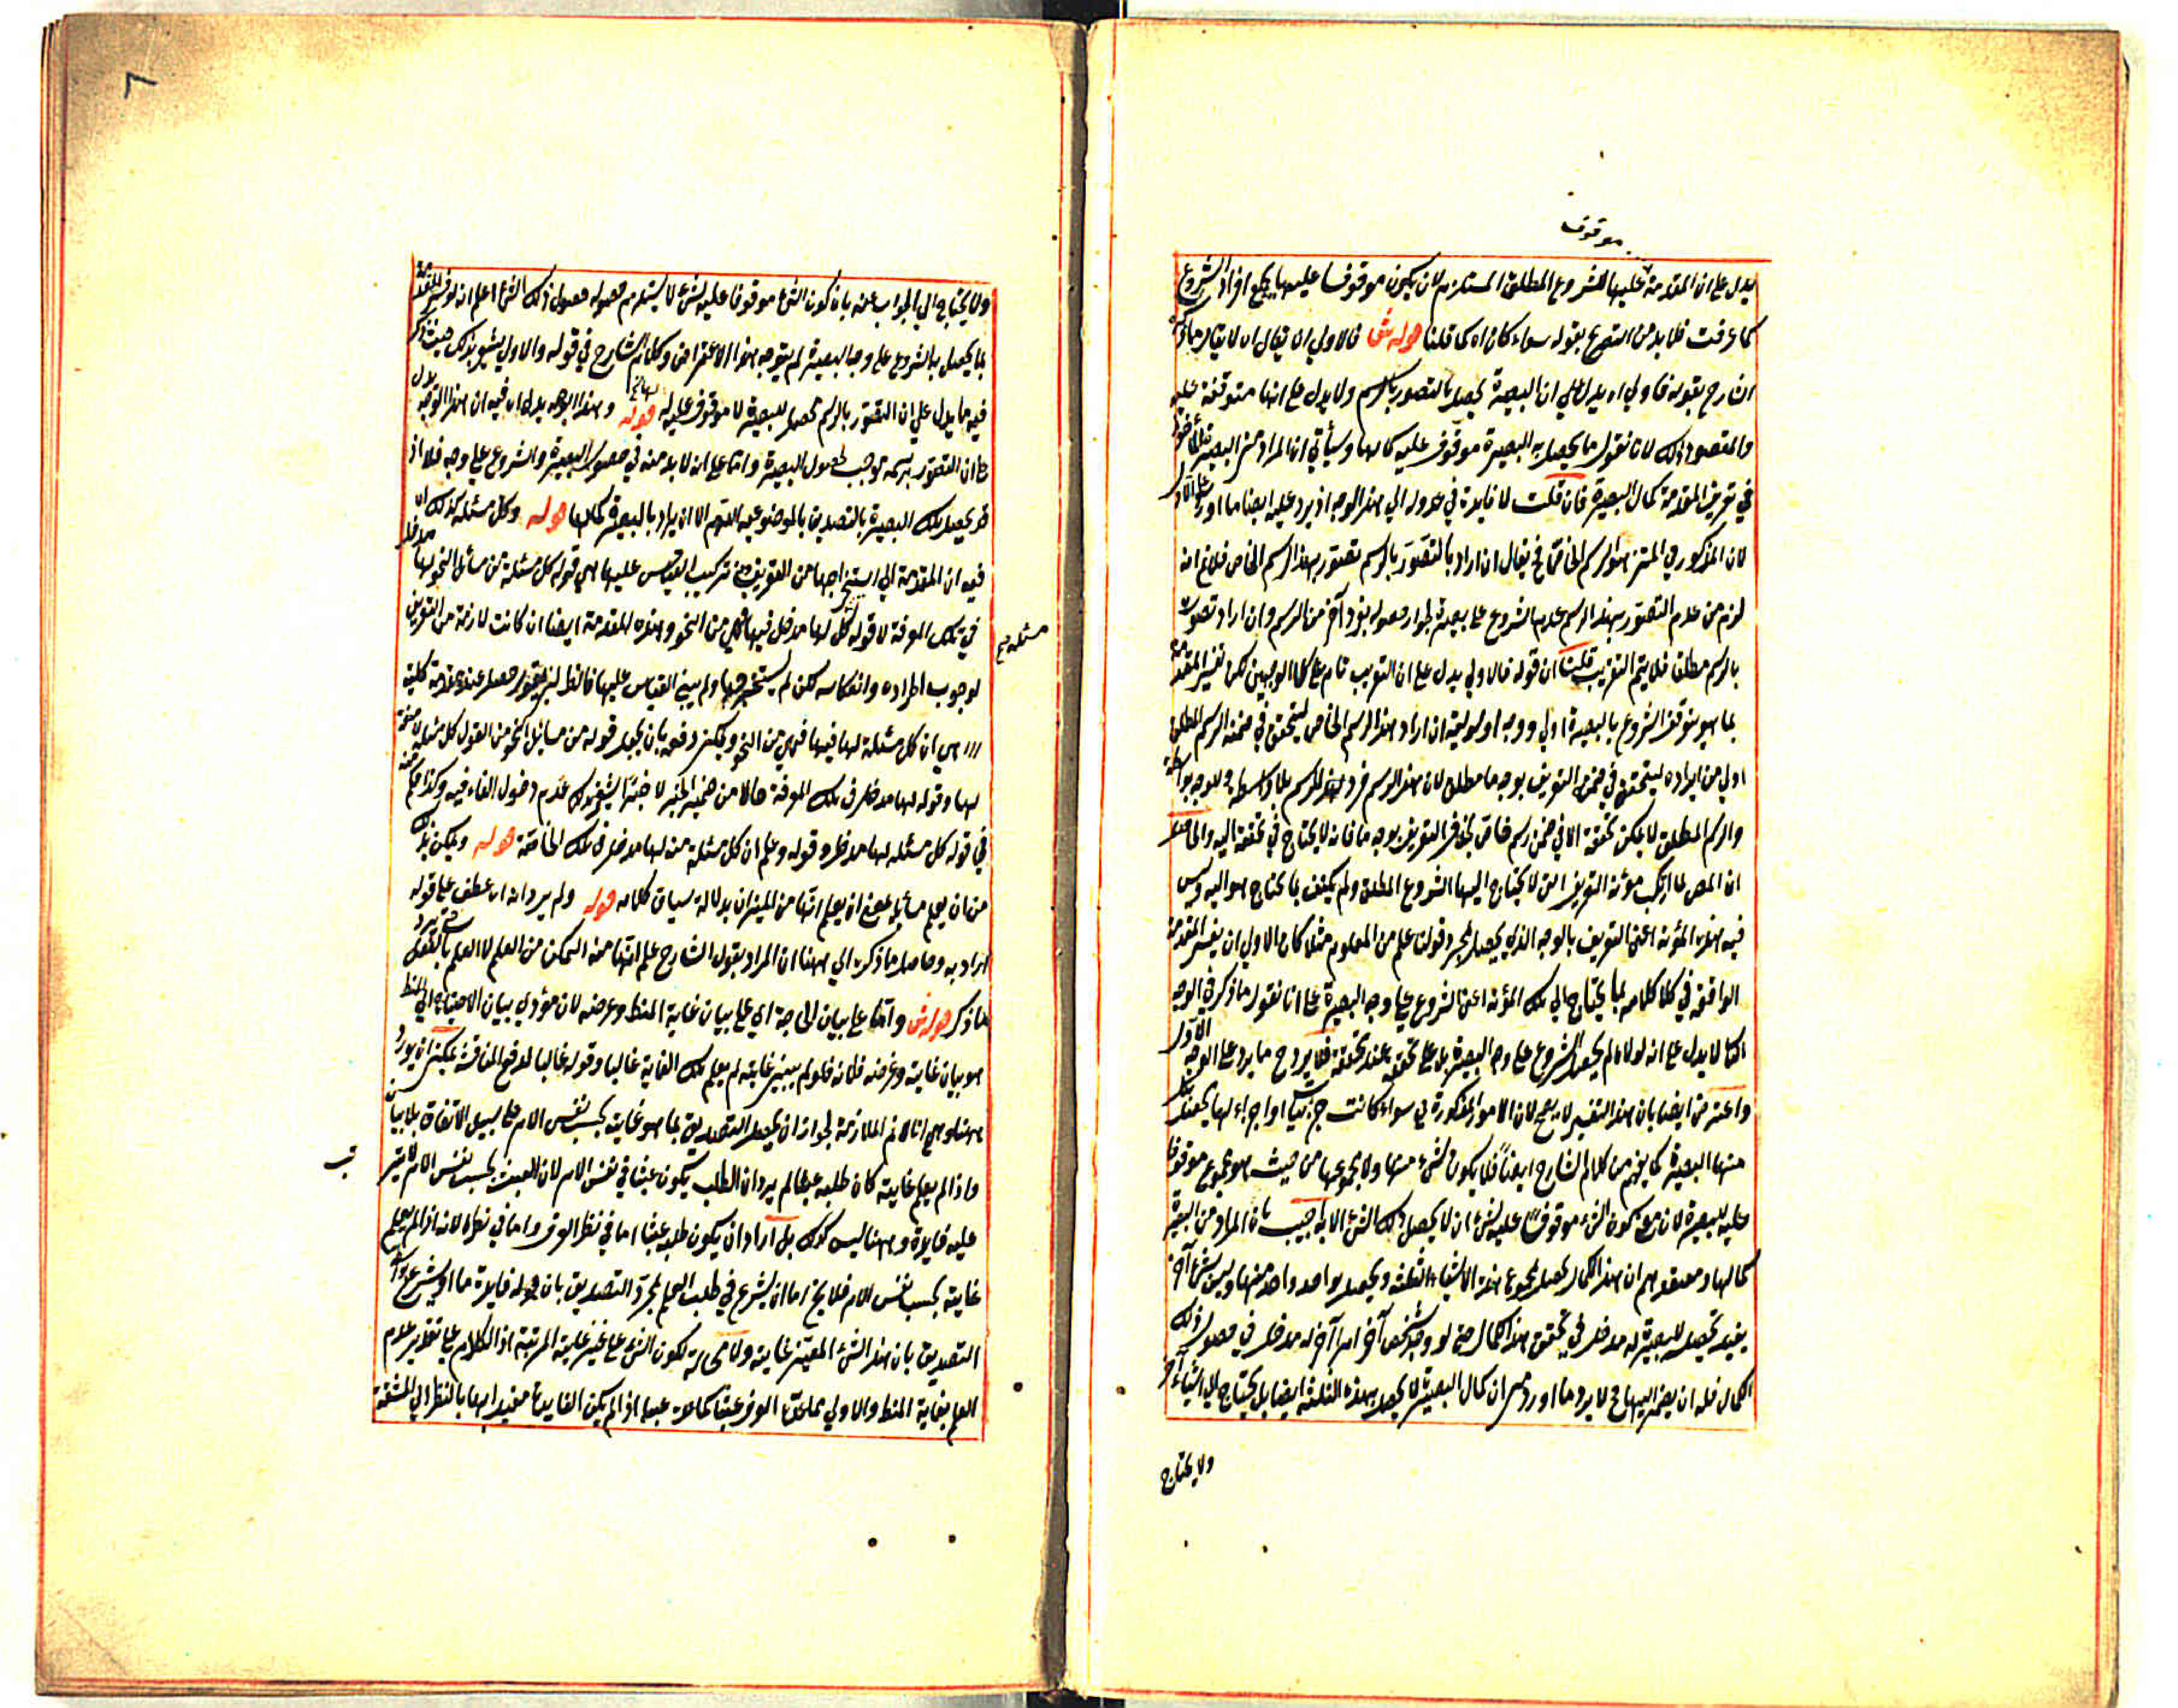 موقوف
يدل على ان المقدمة عليها للشروع المطلق المستلزم لان يكون موقوفا عليها بجميع افراد الشروع
كما عرفت فلا بد من التصريح بقوله سواء كان اه كما قلنا قوله ش فالاولى ان يقال اه لا يقال
الشارح بقوله فاولى اه يدل على ان البصيرة يحصل بالتصور بالرسم ولا يدل على انها متوقفة عليه
والمقصود ذلك لانا نقول ما يحصل به البصيرة موقوف عليه كمالها وسيأتي ان المراد من البصيرة
في تعريف المقدمة كمال البصيرة فان قلت لا فايدة في عدوله الى هذا الوجه اذ يرد عليه ايضا ما اورد على الاول
لان المذكور في المتن هو الرسم الخاص فح يقال ان اراد بالتصور بالرسم تصوره بهذا الرسم الخاص فلا نم انه
لزم من عدم التصور بهذا الرسم عدم الشروع على بصيرة لجواز حصوله بفرد آخر من الرسم وان اراد تصوره
بالرسم مطلقا فلا يتم التقريب قلنا ان قوله فالاولى يدل على ان التقريب تام على كلا الوجهين لكن تفسير المقدمة
بما هو يتوقف الشروع بالبصيرة اولى ووجه اولوليته ان اراد هذا الرسم الخاص ليتحقق في ضمنه الرسم المطلق
اولى من ايراده ليتحقق في ضمن التعريف بوجه ما مطلق لان هذا الرسم فرد لهذا الرسم بلا واسطة وللوجه بواسطة
والرسم المطلق لا يمكن تحققه الا في ضمن رسم خاص بخلاف التعريف بوجه ما فانه لا يحتاج في تحققه اليه والحاصل
ان المص لما ارتكب مؤنة التعريف التي لا يحتاج اليها الشروع المطلق ولم يكتف بما يحتاج هو اليه وليس
فيه هذه المؤنة اعني التعريف بالوجه الذي يحصل بمجرد قولنا علم من العلوم مثلا كان الاولى ان يفسر المقدمة
الواقعة في كلامه بما يحتاج الى تلك المؤنة اعني الشروع على وجه البصيرة على انا نقول ما ذكر في الوجه
الثاني لا يدل على انه لولاه لم يحصل الشروع على وجه البصيرة بل على تحققه عند تحققه فلا يرد ح ما يرد على الوجه الاول
واعترض ايضا بان هذا التفسير لا يصح لان الامور المذكورة في سواء كانت جزئيا او اجزاء لها يحصل بكل
منها البصيرة كما يفهم من كلام الشارح ايضا فلا يكون شئ منها ولا مجموعها من حيث هو مجموع موقوفا
عليه للبصيرة لان معنى كون الشئ موقوفا عليه لشئ ان لا يحصل ذلك الشئ الا به اجيب بان المراد من البصيرة
كمالها ومعتقدهم ان هذا الكمال يحصل بمجموع هذه الاشياء الثلثة ويحصل بواحد واحد منها وليس شئ آخر
يفيد تحصيل للبصيرة له مدخل في تحقق هذا الكمال حتى لو وجد شخص آخر امرا آخر له مدخل في حصول ذلك
الكمال فله ان يضمه اليها فح لا يرد ما اورد من ان كمال البصيرة لا يحصل بهذه الثلثة ايضا بل يحتاج الى اشياء آخر
ولا يحتاج
٨
ولا يحتاج الى الجواب عنه بان كون الشئ موقوفا عليه لشئ لا يستلزم حصوله حصول ذلك الشئ اعلم انه لو فسر المقدمة
بما يحصل به الشروع على وجه البصيرة لم يتوجه هذا الاعتراض وكلام الشارح في قوله والاولى يشير بذلك حيث ذكر
فيه ما يدل على ان التصور بالرسم محصل للبصيرة لا موقوف عليه لها قوله وهذا الوجه يدل اه فيه ان هذا الوجه يدل
على ان التصور برسمه يوجب حصول البصيرة واما على انه لا بد منه في حصول البصيرة والشروع على وجهه فلا اذ
قد يحصل تلك البصيرة بالتصديق بالموضوعية اللهم الا ان يراد بالبصيرة كمالها قوله وكل مسئلة كذلك اه
فيه ان المقدمة التي استخراجها من التعريف تركيب القياس عليها هي قوله كل مسئلة من مسائل النحو لها مدخل
في تلك المعرفة لا قوله كل لها مدخل فيها فهي من النحو وهذه المقدمة ايضا ان كانت لازمة من التعريف
مسئلة صح
لوجوب اطراده وانعكاسه لكن لم يستخرجها ولم يبنى القياس عليها فالظ ان يقول حصل عنده مقدمة كلية
هي ان كل مسئلة لها فيها فهي من النحو ويمكن دفعه بان يجعل قوله من مسائل النحو من القول كل مسئلة لا صفة
لها وقوله لها مدخل في تلك المعرفة حالا من ضمير الخبر لا خبرا يشعر بذلك عدم دخول الفاء فيه وكذا حكم
في قوله كل مسئلة لها مدخل وقوله وعلم ان كل مسئلة منه لها مدخل في تلك الخاصة قوله ويمكن بذلك
من ان يعلم مسائله بمعنى ان يعلم انها من الميزان بدلالة سياق كلامه قوله ولم يرد انه اه عطف على قوله
اراد به وحاصل ما ذكره الى ههنا ان المراد بقول الشارح علم انها منه التمكن من العلم لا العلم بالفعل حتى يرد
ما ذكر قوله ش واما على بيان الحاجة اي على بيان غاية المنطق وغرضه لان مؤدى بيان الاحتياج الى المنطق
هو بيان غايته وغرضه فلانه فلو لم يبين غايته لم يعلم تلك الغاية غالبا وقوله غالبا لدفع المناقشة يمكن ان يورد
ههنا وهي انا لا نم الملازمة لجواز ان يحصل التصديق بما هو غايته بحسب نفس الامر على سبيل الاتفاق بلا بيان
واذا لم يعلم غايته كان طلبه عبثا لم يرد ان الطلب يكون عبثا في نفس الامر لان العبث بحسب نفس الامر لا يترتب
عليه فايدة وههنا ليس كذلك بل اراد ان يكون طلبه عبثا اما في نظر العرف واما في نظره لانه اذا لم يعلم
غايته بحسب نفس الامر فلا يخ اما ان يشرع في طلب العلم بمجرد التصديق بان له فايدة ما او يشرع
التصديق بان هذا الشئ المعين غايته ولا محالة لكون الشئ على غير غايته المرتبة اذ الكلام على تقدير عدم
العلم بغاية المنطق والاولى العرف عبثا كما عده عبثا اذا لم يكن الفايدة معتدا بها بالنظر الى المشقة